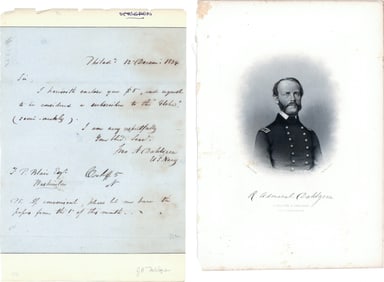 DAHLGREN
Philad.ª 12 December 1834
Sir
I herewith enclose you $5, and request
to be considered a subscriber to the "Globe"
(semi-weekly).
I am very respectfully
Your Obdt Servt
Jno A Dahlgren
U.S. Navy
F. P. Blair Esqr
Washington
PS. If convenient, please let me have the
papers from the 1st of this month.
R. Admiral Dahlgren